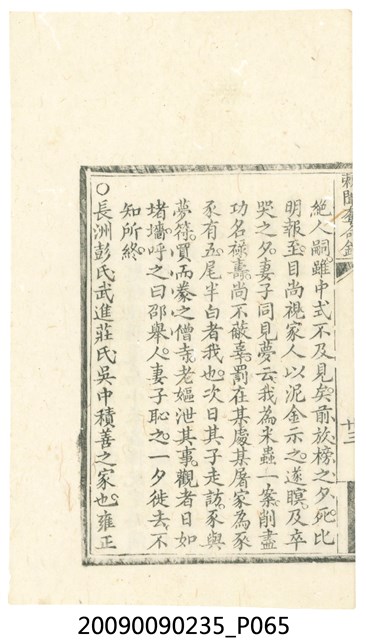 絶人嗣。雖中式不及見矣。前放榜之夕。死。比
明報至。目尚視。家人以泥金示之。遂瞑。及卒
哭之夕。妻子同見夢云。我為米蟲一案。削盡
功名祿壽。尚不蔽辜。罰在某處某屠家為豕
豕有五尾半白者。我也。次日其子走訪。豕與
夢符。買而豢之僧寺。老嫗泄其事。觀者日如
堵墻。呼之曰邵舉人。妻子恥之。一夕徙去。不
知所終。
○長洲彭氏武進莊氏吳中積善之家也。雍正
十三
20090090235_P065